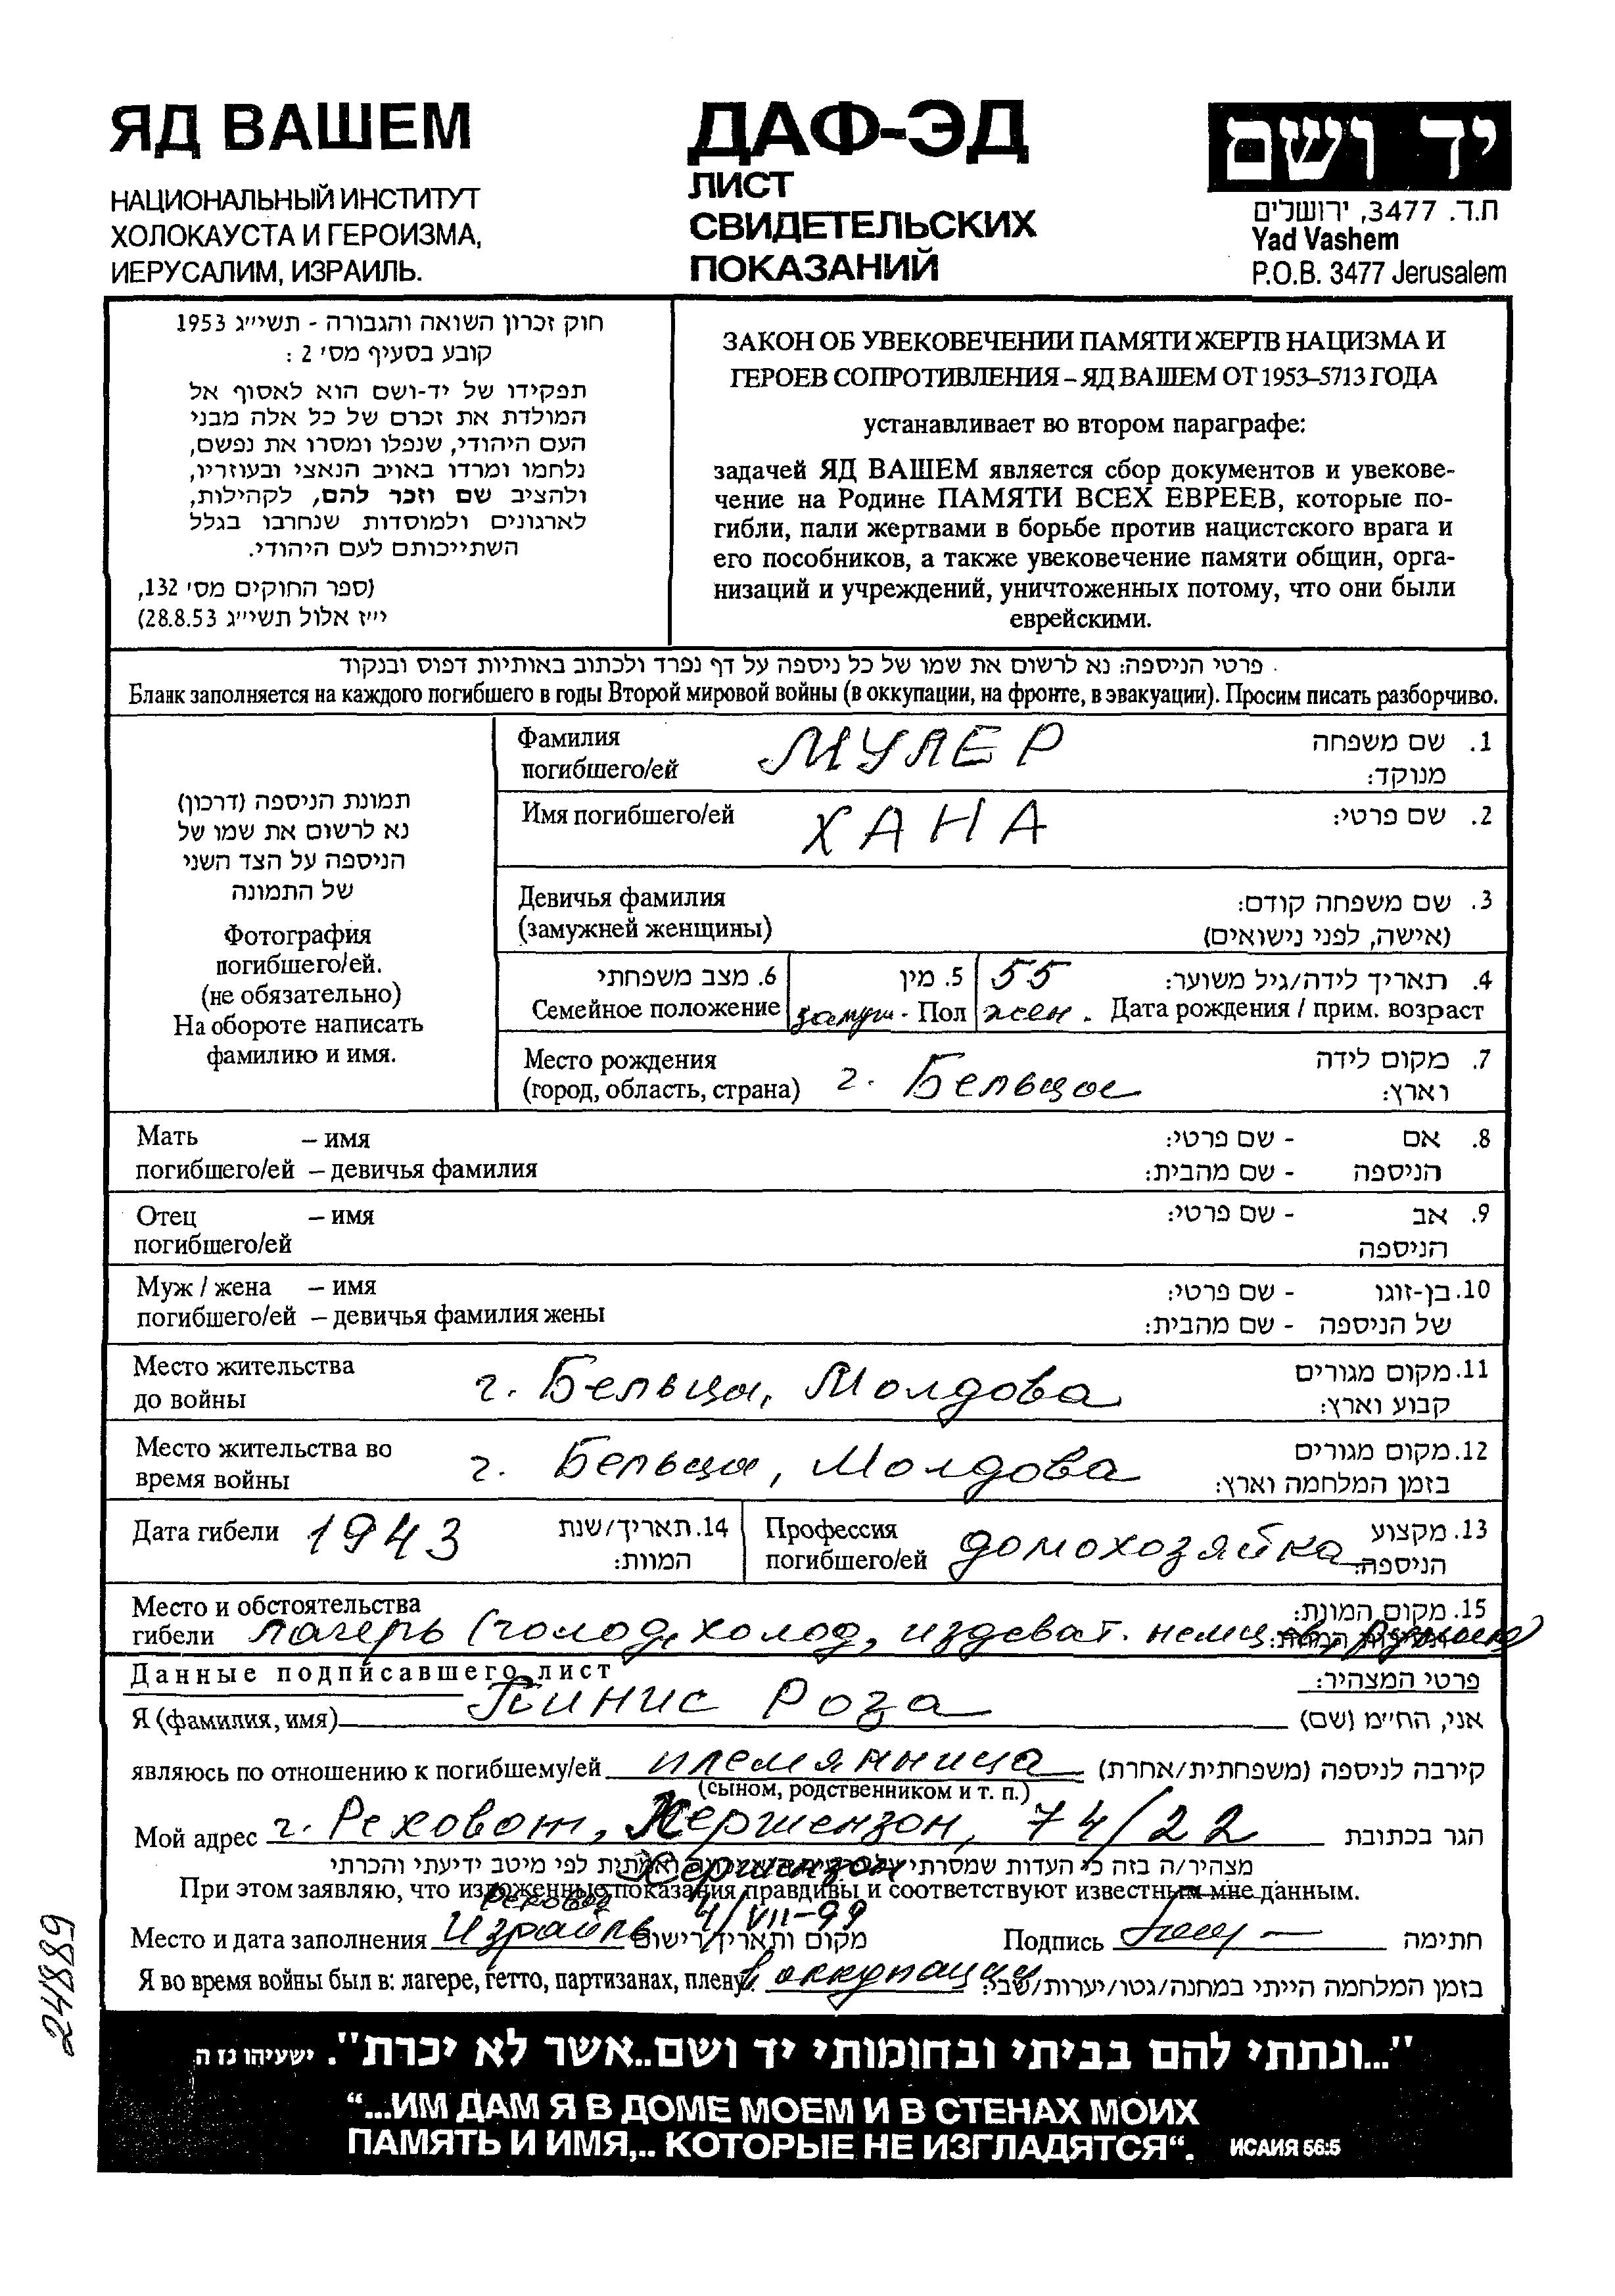 ЯД ВАШЕМ
НАЦИОНАЛЬНЫЙ ИНСТИТУТ
ХОЛОКАУСТА И ГЕРОИЗМА,
ИЕРУСАЛИМ, ИЗРАИЛЬ.
ДАФ-ЭД
ЛИСТ
СВИДЕТЕЛЬСКИХ
ПОКАЗАНИЙ
יד ושם
ת.ד. 3477, ירושלים
Yad Vashem
P.O.B. 3477 Jerusalem
חוק זכרון השואה והגבורה - תשי״ג 1953
קובע בסעיף מס׳ 2 :
תפקידו של יד-ושם הוא לאסוף אל
המולדת את זכרם של כל אלה מבני
העם היהודי, שנפלו ומסרו את נפשם,
נלחמו ומרדו באויב הנאצי ובעוזריו,
ולהציב שם וזכר להם, לקהילות,
לארגונים ולמוסדות שנחרבו בגלל
השתייכותם לעם היהודי.
(ספר החוקים מס׳ 132,
י״ז אלול תשי״ג 28.8.53)
ЗАКОН ОБ УВЕКОВЕЧЕНИИ ПАМЯТИ ЖЕРТВ НАЦИЗМА И
ГЕРОЕВ СОПРОТИВЛЕНИЯ – ЯД ВАШЕМ ОТ 1953–5713 ГОДА
устанавливает во втором параграфе:
задачей ЯД ВАШЕМ является сбор документов и увекове-
чение на Родине ПАМЯТИ ВСЕХ ЕВРЕЕВ, которые по-
гибли, пали жертвами в борьбе против нацистского врага и
его пособников, а также увековечение памяти общин, орга-
низаций и учреждений, уничтоженных потому, что они были
еврейскими.
פרטי הניספה: נא לרשום את שמו של כל ניספה על דף נפרד ולכתוב באותיות דפוס ובנקוד
Бланк заполняется на каждого погибшего в годы Второй мировой войны (в оккупации, на фронте, в эвакуации). Просим писать разборчиво.
תמונת הניספה (דרכון)
נא לרשום את שמו של
הניספה על הצד השני
של התמונה
Фотография
погибшего/ей.
(не обязательно)
На обороте написать
фамилию и имя.
Фамилия МУЛЕР 1. שם משפחה
погибшего/ей מנוקד:
Имя погибшего/ей ХАНА 2. שם פרטי:
Девичья фамилия 3. שם משפחה קודם:
(замужней женщины) (אישה, לפני נישואים)
6. מצב משפחתי 5. מין 55 4. תאריך לידה/גיל משוער:
Семейное положение замуж. Пол жен. Дата рождения / прим. возраст
Место рождения 7. מקום לידה
(город, область, страна) г. Бельцы וארץ:
Мать – имя 8. אם - שם פרטי:
погибшего/ей – девичья фамилия הניספה - שם מהבית:
Отец – имя 9. אב - שם פרטי:
погибшего/ей הניספה
Муж / жена – имя 10. בן-זוגו - שם פרטי:
погибшего/ей – девичья фамилия жены של הניספה - שם מהבית:
Место жительства г. Бельцы, Молдова 11. מקום מגורים
до войны קבוע וארץ:
Место жительства во г. Бельцы, Молдова 12. מקום מגורים
время войны בזמן המלחמה וארץ:
Дата гибели 1943 14. תאריך/שנת Профессия домохозяйка 13. מקצוע
המוות: погибшего/ей הניספה:
Место и обстоятельства 15. מקום המוות:
гибели лагерь (голод, холод, издеват. немцев,
Данные подписавшего лист פרטי המצהיר:
Я (фамилия, имя) Пинис Роза אני, הח״מ (שם)
являюсь по отношению к погибшему/ей племянница קירבה לניספה (משפחתית/אחרת)
(сыном, родственником и т. п.)
Мой адрес г. Реховот, Хершензон, 74/22 הגר בכתובת
Хершензон
מצהיר/ה בזה כי העדות שמסרתי לפי מיטב ידיעתי והכרתי
При этом заявляю, что изложенные показания правдивы и соответствуют известным мне данным.
Реховот
Место и дата заполнения Израиль 4/VII-99 מקום ותאריך רישום Подпись חתימה
Я во время войны был в: лагере, гетто, партизанах, плену. в оккупации בזמן המלחמה הייתי במחנה/גטו/יערות/שבי:
24889
"...ונתתי להם בביתי ובחומותי יד ושם..אשר לא יכרת". ישעיהו נז ה
“...ИМ ДАМ Я В ДОМЕ МОЕМ И В СТЕНАХ МОИХ
ПАМЯТЬ И ИМЯ,.. КОТОРЫЕ НЕ ИЗГЛАДЯТСЯ“. ИСАИЯ 56:5